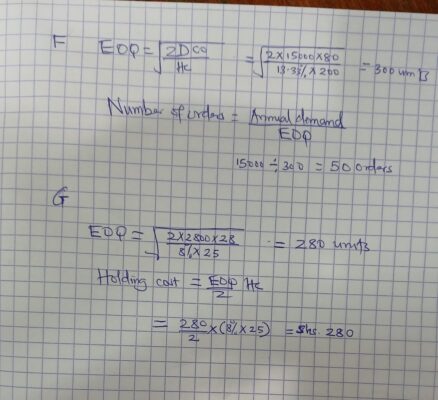 F EOQ = √2DCo/Hc = √2×15000×80/13.33%×200 = 300 units
Number of orders = Annual demand/EOQ
15000 ÷ 300 = 50 orders
G
EOQ = √2×2800×28/8%×25 = 280 units
Holding cost = EOQ/2 Hc
= 280/2 × (8% × 25) = Shs. 280